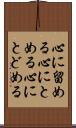 心に留め
る心にと
める心に
とどめる